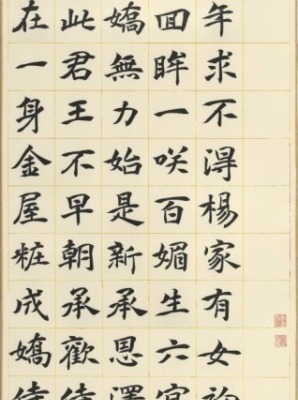 年求不得楊家有女初
回眸一咲百媚生六宮
嬌無力始是新承恩澤
此君王不早朝承歡侍
在一身金屋粧成嬌侍